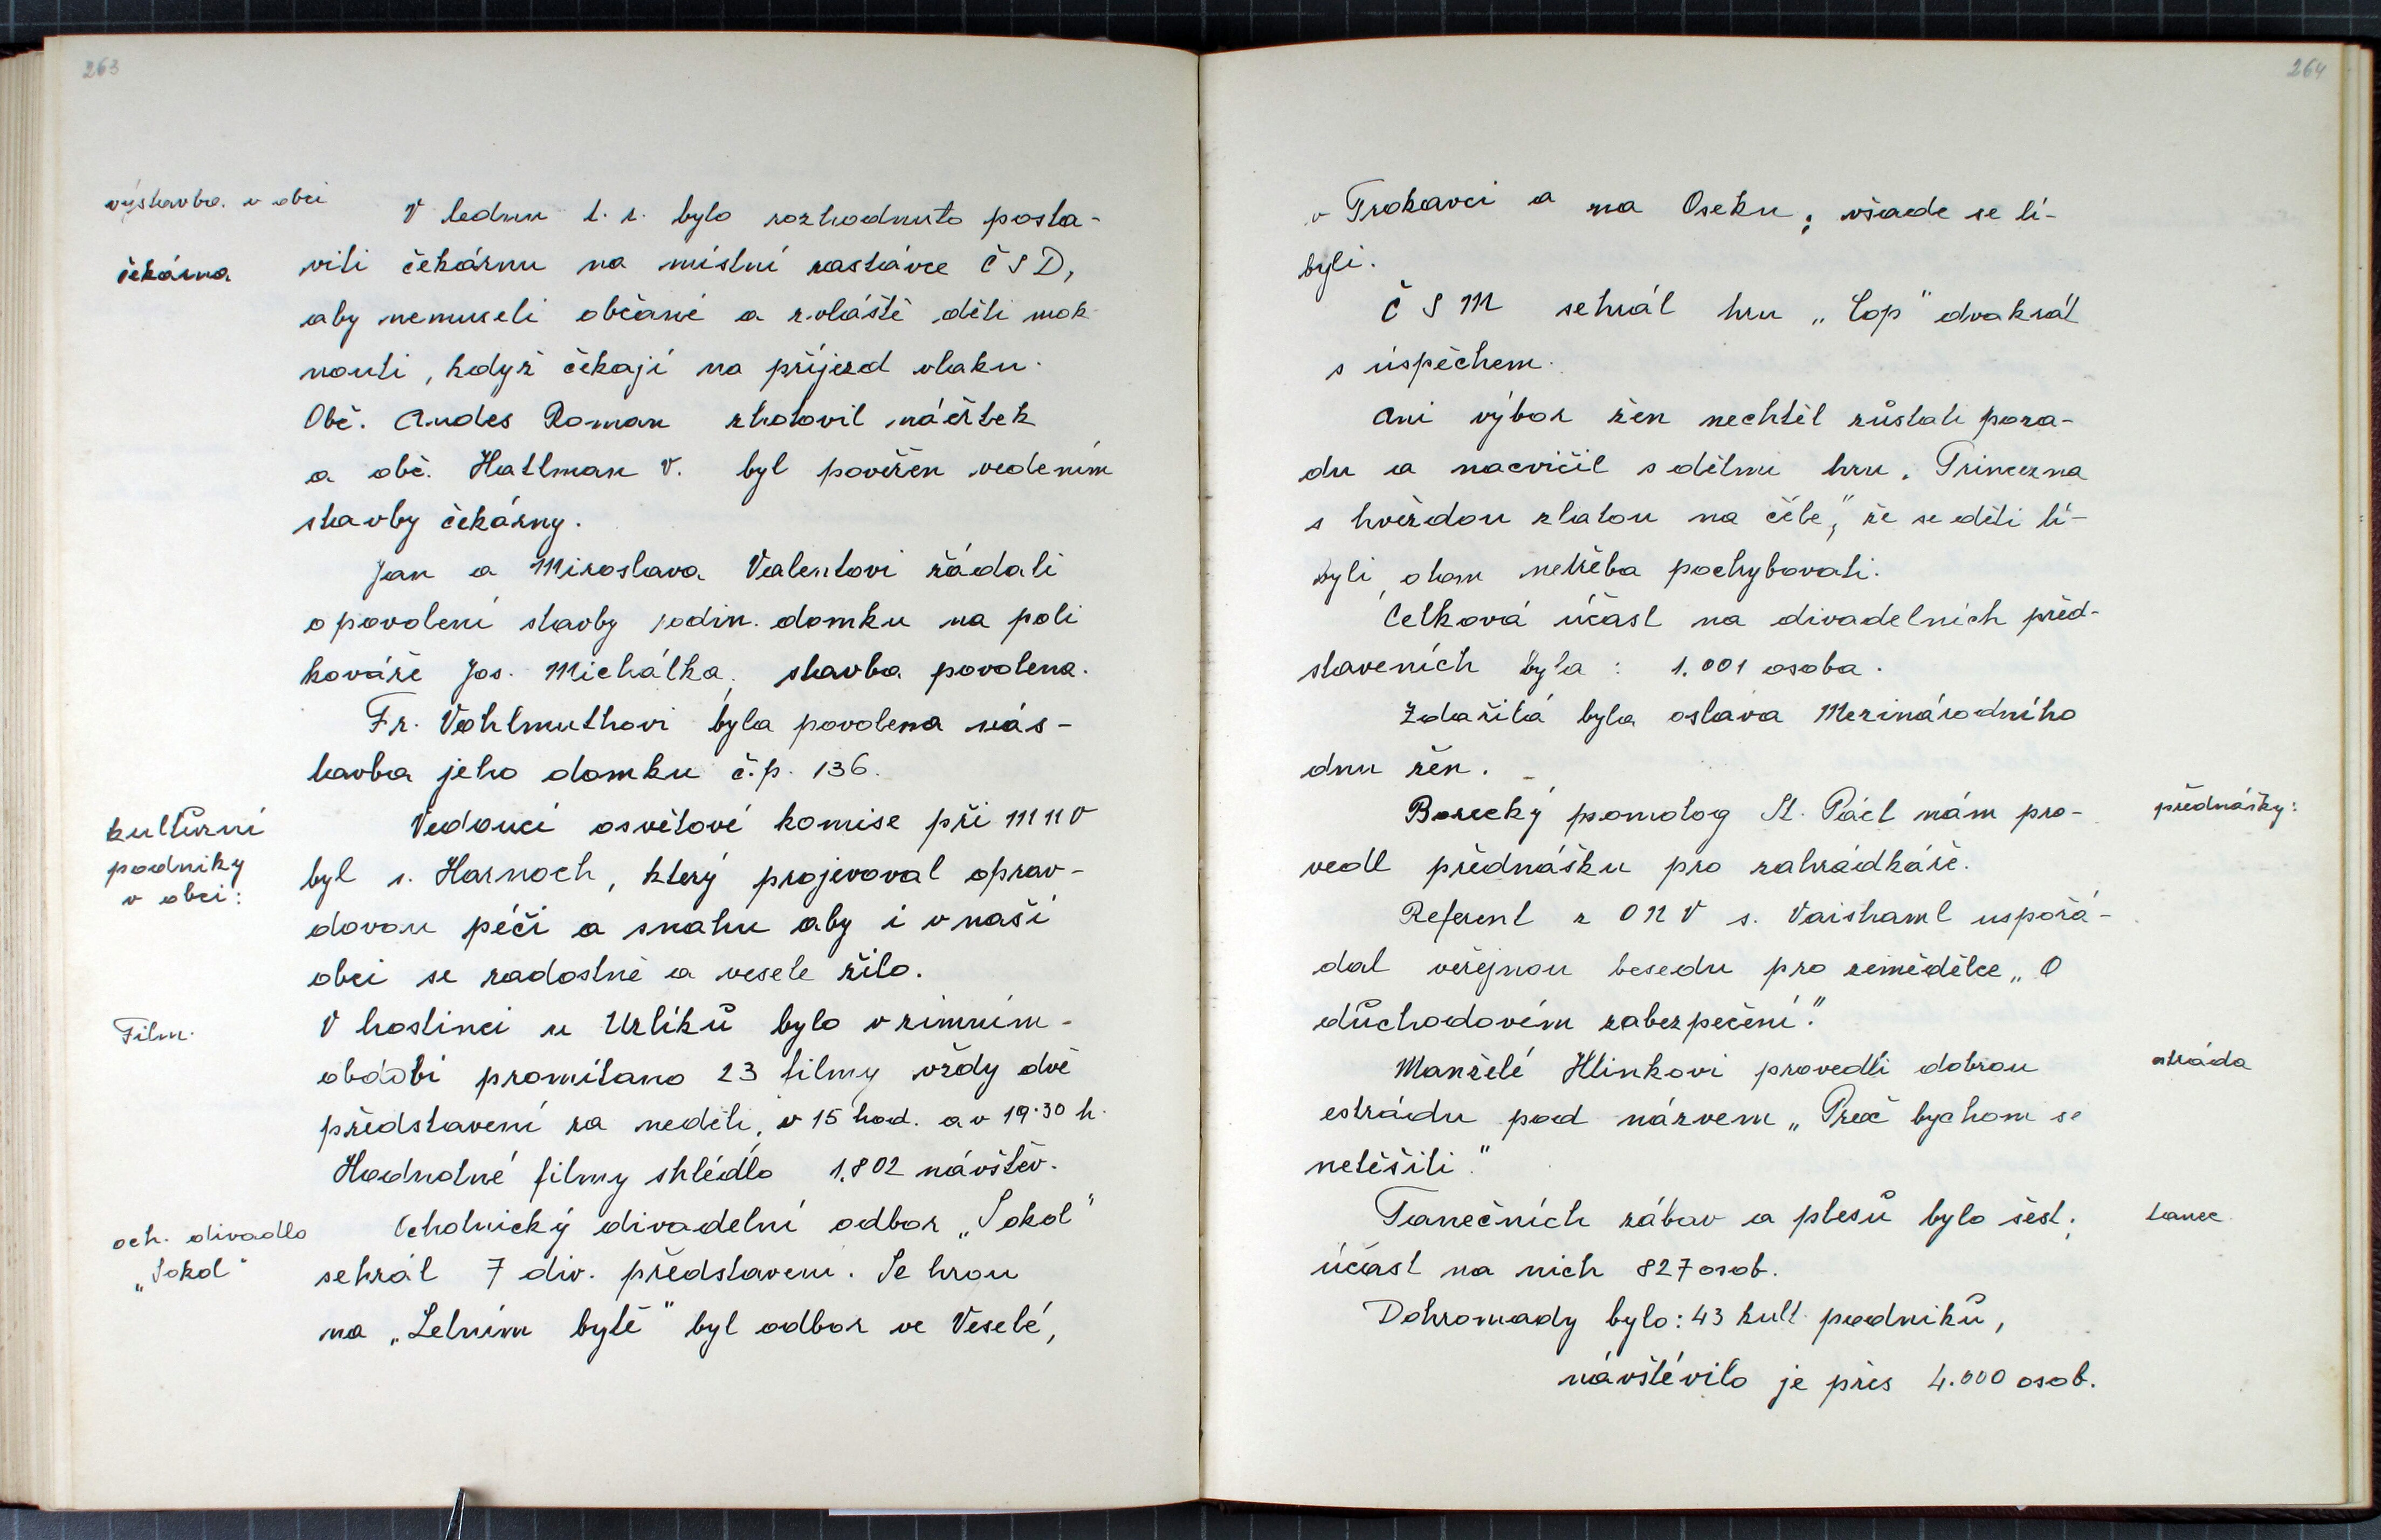 263
výstavba v obci
V lednu t. r. bylo rozhodnuto posta-
čekárna
viti čekárnu na místní zastávce ČSD,
aby nemuseli občané a zvláště děti mok-
nouti, když čekají na příjezd vlaku.
Obč. Andes Roman zhotovil náčrtek
a obč. Hatlman V. byl pověřen vedením
stavby čekárny.
Jan a Miroslava Valentovi žádali
o povolení stavby rodin. domku na poli
kováře Jos. Michálka, stavba povolena.
Fr. Vohlmuthovi byla povolena nás-
tavba jeho domku č.p. 136.
kulturní
podniky
v obci:
Vedoucí osvětové komise při MNV
byl s. Harnoch, který projevoval oprav-
dovou péči a snahu aby i v naší
obci se radostně a vesele žilo.
Film.
V hostinci u Urlíků bylo v zimním
období promítano 23 filmy vždy dvě
představení za neděli, v 15 hod. a v 19.30 h.
Hodnotné filmy shlédlo 1.802 návštěv.
och. divadlo
„Sokol"
Ochotnický divadelní odbor „Sokol"
sehrál 7 div. představení. Se hrou
na „Letním bytě" byl odbor ve Veselé,
264
v Trokavci a na Oseku; všade se lí-
byli.
ČSM sehrál hru „Cop" dvakrát
s úspěchem.
Ani výbor žen nechtěl zůstati poza-
du a nacvičil s dětmi hru „Princezna
s hvězdou zlatou na čele", že se děti lí-
byli, o tom netřeba pochybovati.
Celková účast na divadelních před-
staveních byla : 1.001 osoba.
Zdařilá byla oslava Mezinárodního
dnu žen.
přednášky:
Borecký pomolog St. Pácl nám pro-
vedl přednášku pro zahrádkáře.
Referent z ONV s. Vaishaml uspořá-
dal veřejnou besedu pro zemědělce „O
důchodovém zabezpečení."
estráda
Manželé Hlinkovi provedli dobrou
estrádu pod názvem „Proč bychom se
netěšili."
tanec
Tanečních zábav a plesů bylo šest;
účast na nich 827 osob.
Dohromady bylo: 43 kult. podniků,
návštěvilo je přes 4.000 osob.